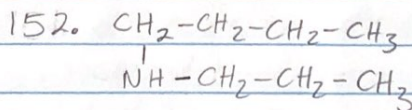 152. CH₂-CH₂-CH₂-CH₃
|
NH-CH₂-CH₂-CH₃